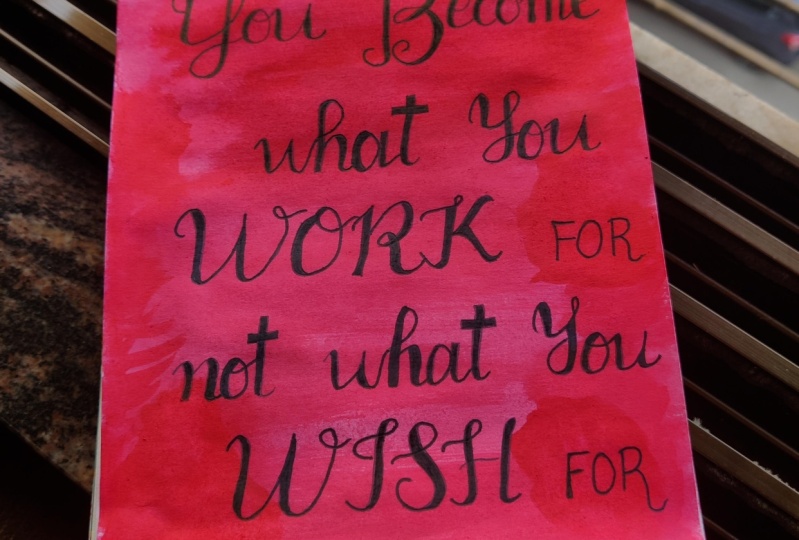 You Become
what You
WORK FOR
not what You
WISH FOR